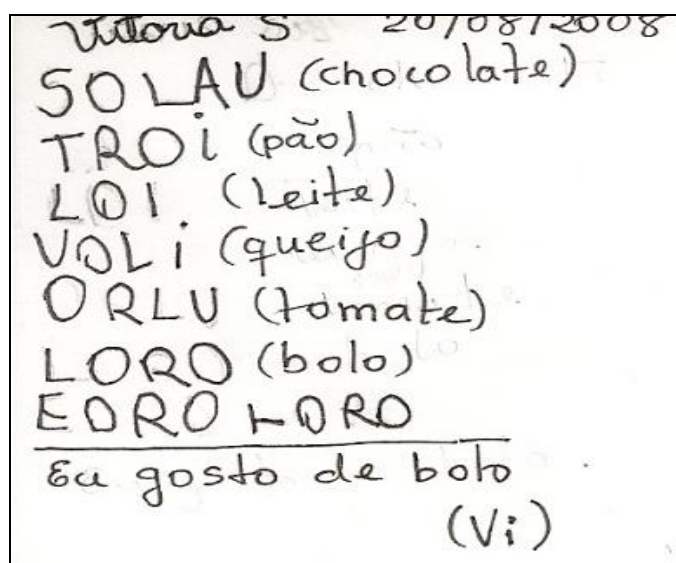 Vitoria S 20/08/2008
SOLAU (chocolate)
TROi (pão)
LOI (leite)
VOLi (queijo)
ORLU (tomate)
LORO (bolo)
EORO LORO
Eu gosto de bolo
(Vi)